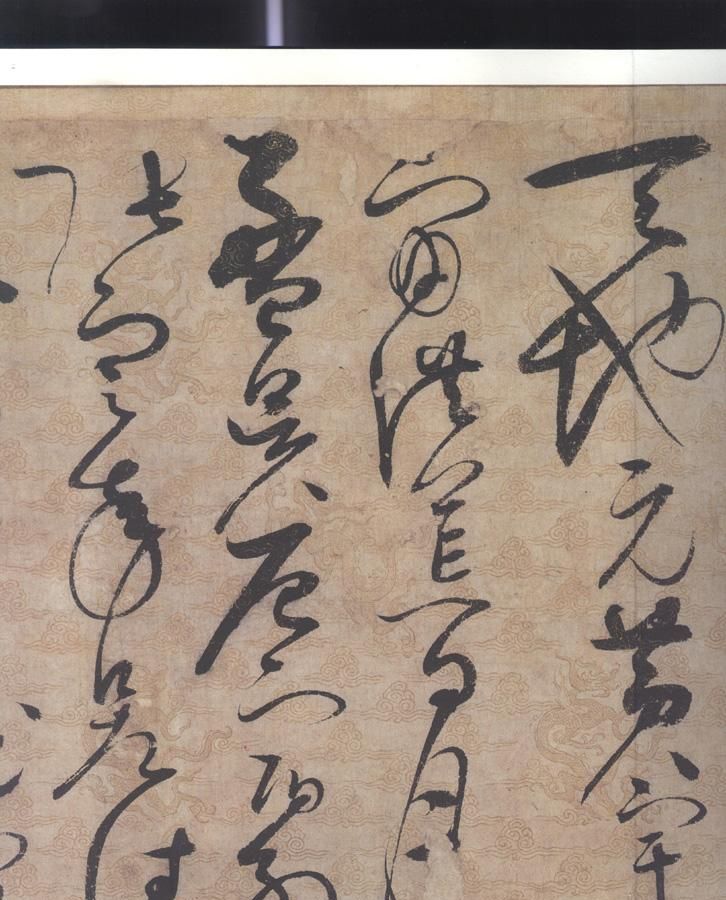 天地元黃宇
宙洪荒日月
盈昃辰宿列
張寒來暑往